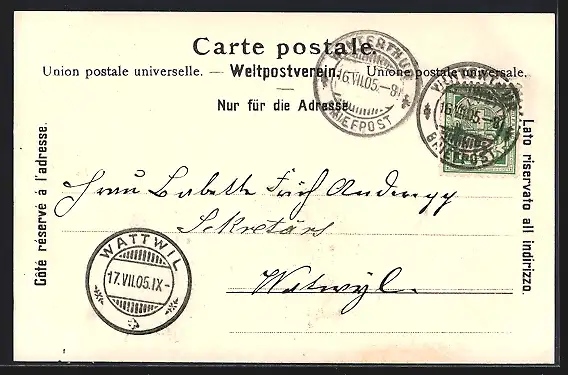 Carte postale.
Union postale universelle. — Weltpostverein. — Unione postale universale.
Nur für die Adresse
Côté réservé à l'adresse.
Lato riservato all indirizzo.
WINTERTHUR
16.VII.05.-8
BRIEFPOST
WINTERTHUR
16.VII.05.-8
BRIEFPOST
Frau Babette Frich Anderegg
Sekretärs
Watwyl.
WATTWIL
17.VII.05.IX-